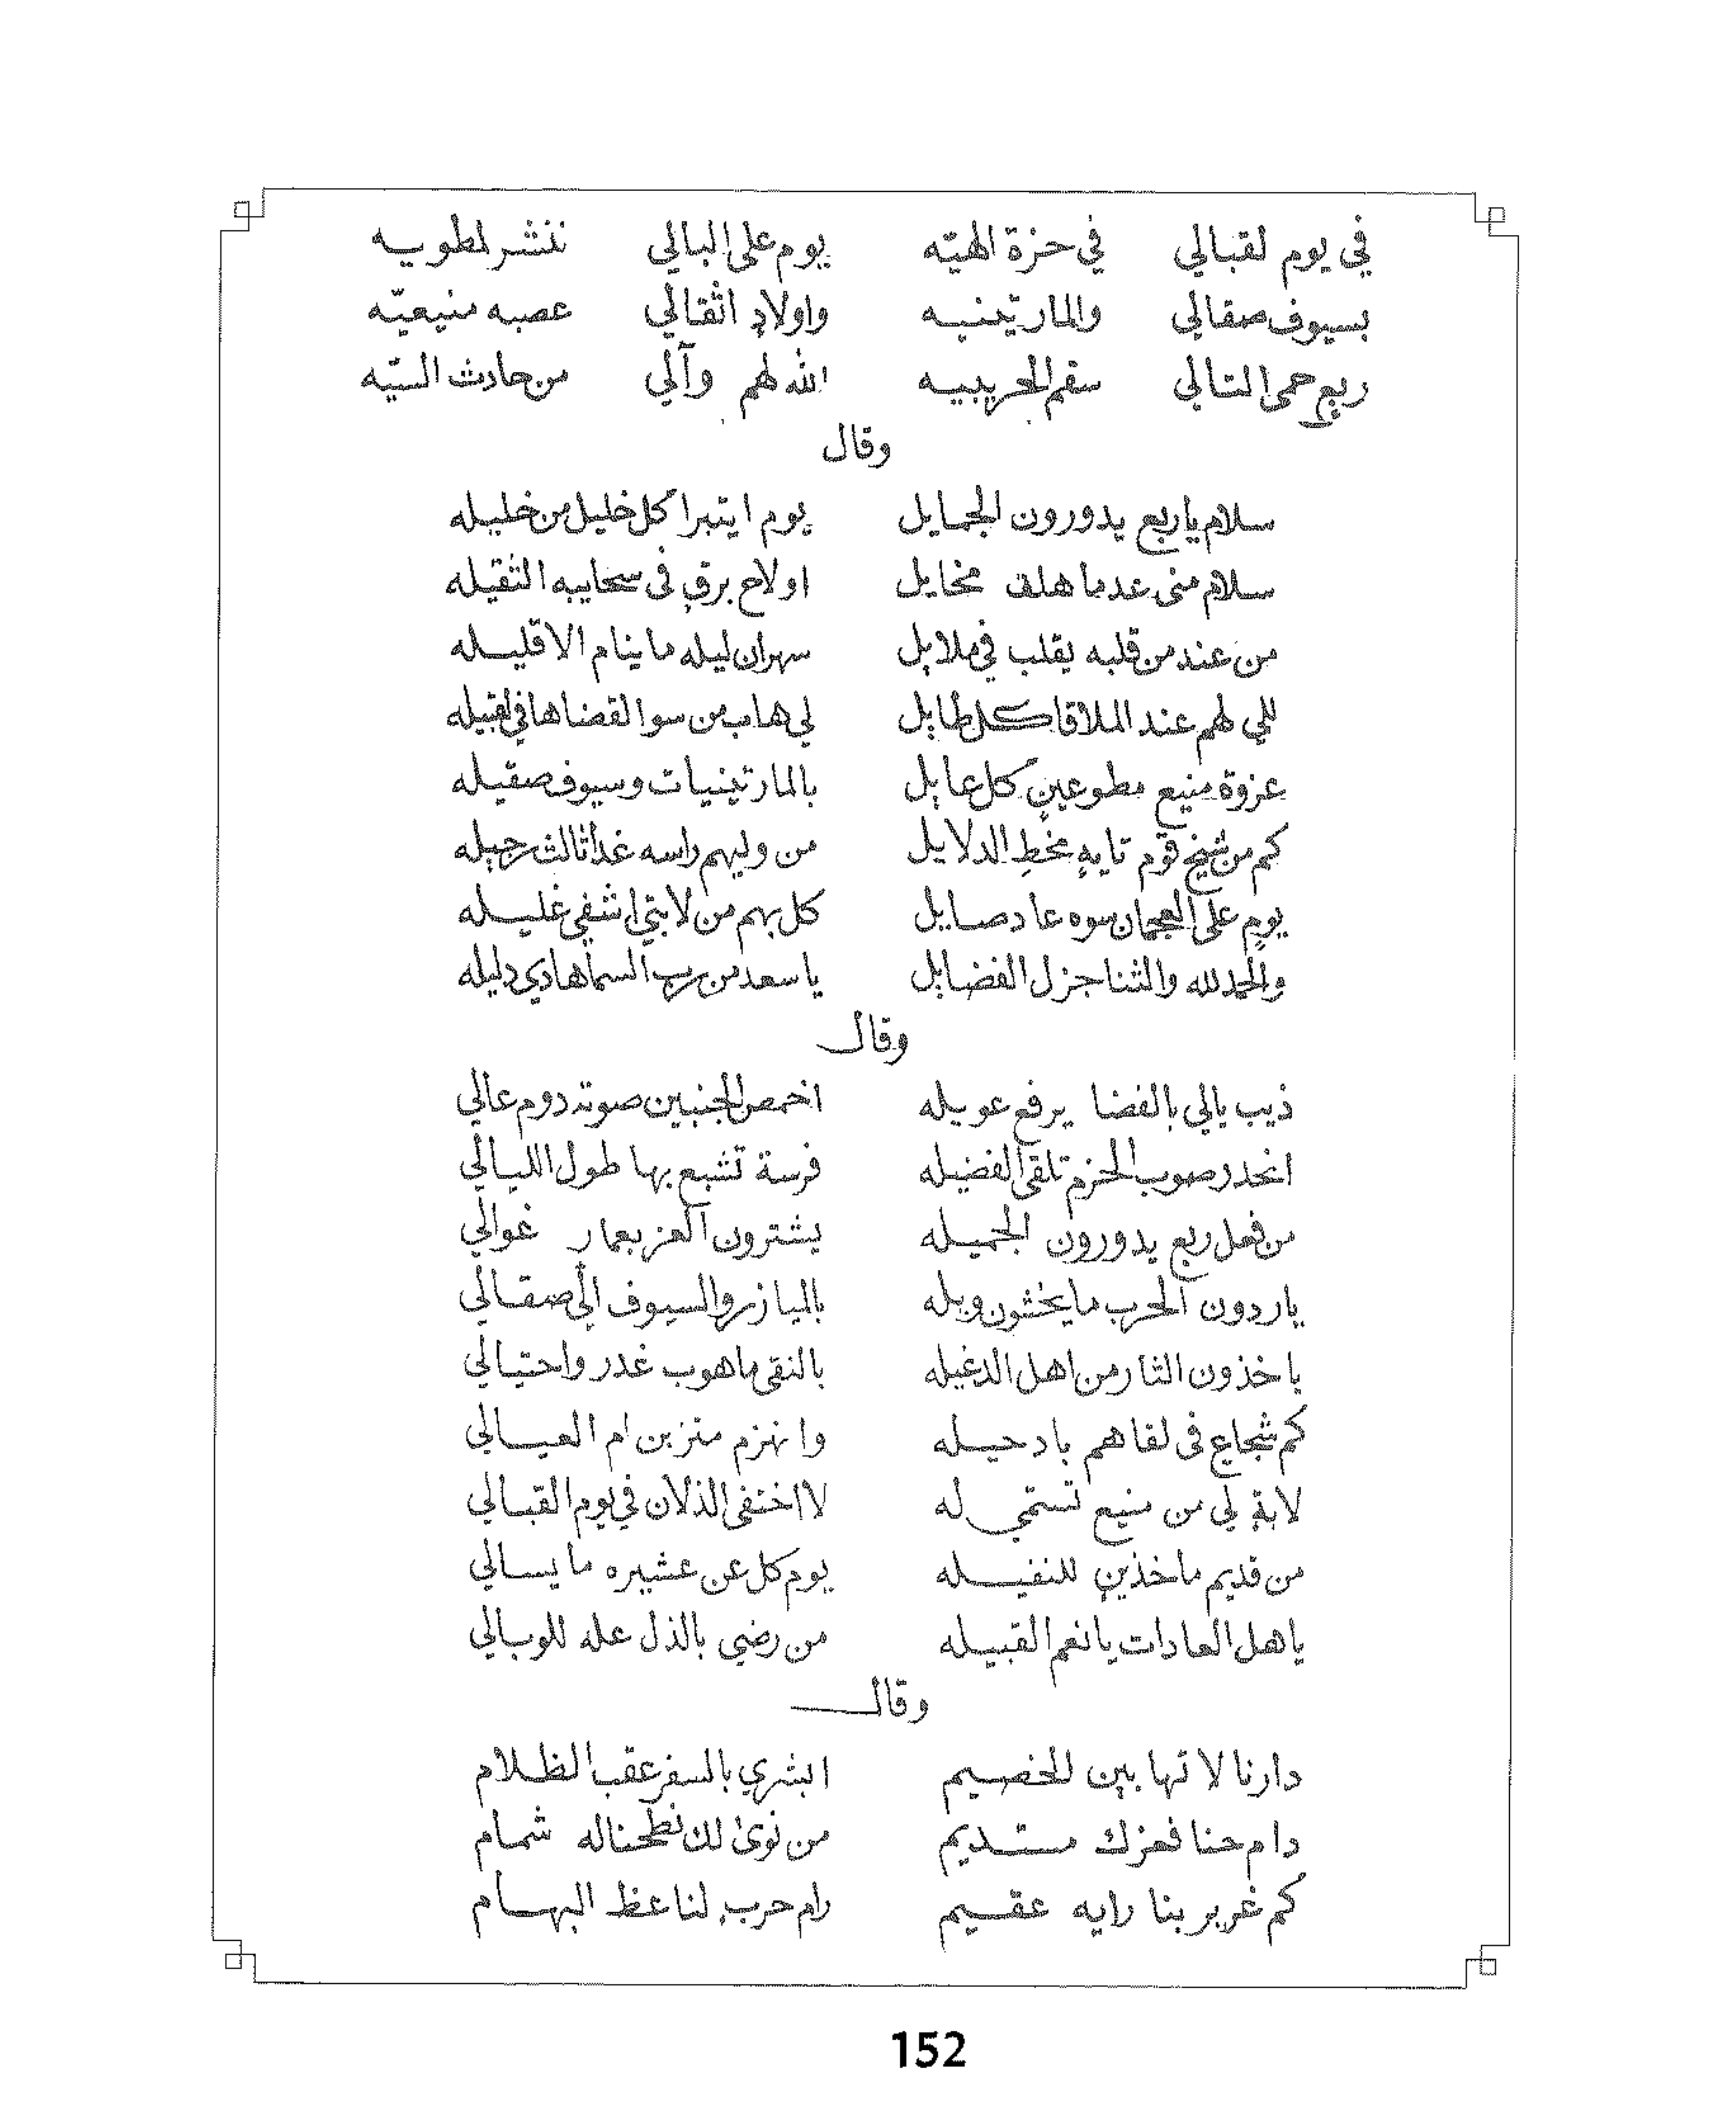 في يوم لقبالي في حزة الهيّه يوم على البالي ننشر لمطويه
بسيوف صقالي والمارتينيه واولادٍ اثقالي عصبه منيعيّه
ربعٍ حمى التالي سقم الحريبيه الله لهم وآلي من حادث السيّه
وقال
سلام يا ربع يدورون الجمايل يوم ايتبرا كل خليل من خليله
سلام مني عد ما هلف مخايل او لاح برقٍ في سحايبه الثقيله
من عند من قلبه يقلب في ملايل سهران ليله ما ينام الا قليله
للي لهم عند الملاقا كل طايل لي هاب من سو القضاها في لقبيله
عزوة منيع مطوعينٍ كل عايل بالمارتينيات وسيوف صقيله
كم من شيخ قومٍ تايهٍ مخطِ الدلايل من وليهم راسه غدا ثالث رجيله
يومٍ على العجمان سوه عاد صايل كل بهم من لابتي اشفي غليله
والحمد لله والثنا جزل الفضايل يا سعد من رب السما هادي دليله
وقال
ذيب يالي بالفضا يرفع عويله اخمص الجنبين صوته دوم عالي
انحدر صوب الحزم تلقى الفضيله فرسة تشبع بها طول الليالي
من فعل ربع يدورون الجميله يشترون العز بعمار غوالي
ياردون الحرب ما يخشون ويله بالميازر والسيوف الي صقالي
ياخذون الثار من اهل الدغيله بالنقى ماهوب غدر واحتيالي
كم شجاعٍ في لقاهم باد حيله وانهزم متزبن ام العيالي
لابةٍ لي من منيع تستمي له لا اختفى الذلان في يوم القبالي
من قديم ماخذينٍ للنفيله يوم كل عن عشيره ما يسالي
يا هل العادات يا نعم القبيله من رضي بالذل عله للوبالي
وقال
دارنا لا تهابين للخصيم ابشري بالسفر عقب الظلام
دام حنا فعزك مستديم من نوى لك نطحناله شمام
كم غرير بنا رايه عقيم رام حربٍ لنا عظ البهام
152